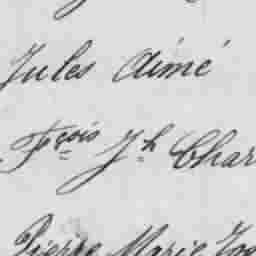 Jules Aimé
Fçois Jh Char
Pierre Marie Jos